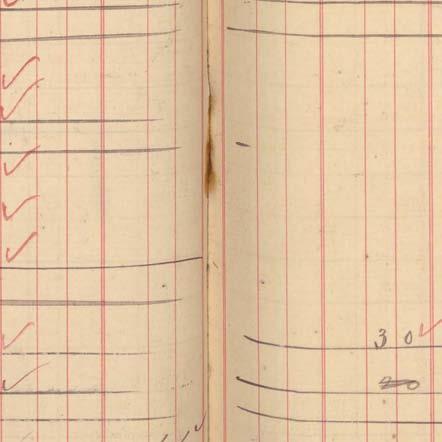 3 0
20